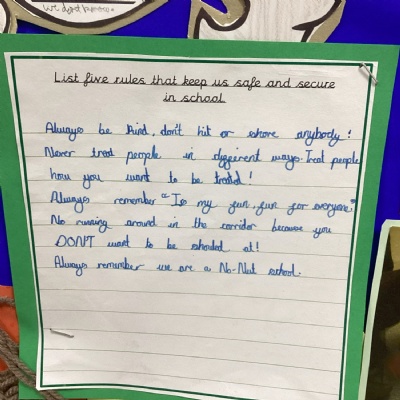 we dont
List five rules that keep us safe and secure
in school
Always be kind, don't hit or shove anybody!
Never treat people in different ways. Treat people
how you want to be treated!
Always remember "Is my fun, fun for everyone?"
No running around in the corridor because you
DON'T want to be shouted at!
Always remember we are a No-Nut school.